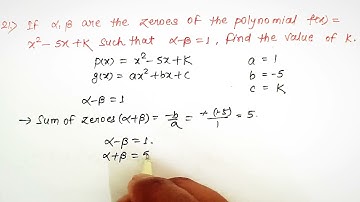 21.) If α,β are the zeroes of the polynomial f(x)=
x² - 5x + K such that α-β=1, find the value of K.
p(x) = x² - 5x + K
g(x) = ax² + bx + c
a = 1
b = -5
c = K
α-β = 1
→ Sum of zeroes (α+β) = -b/a = -(-5)/1 = 5.
α-β = 1.
α+β = 5